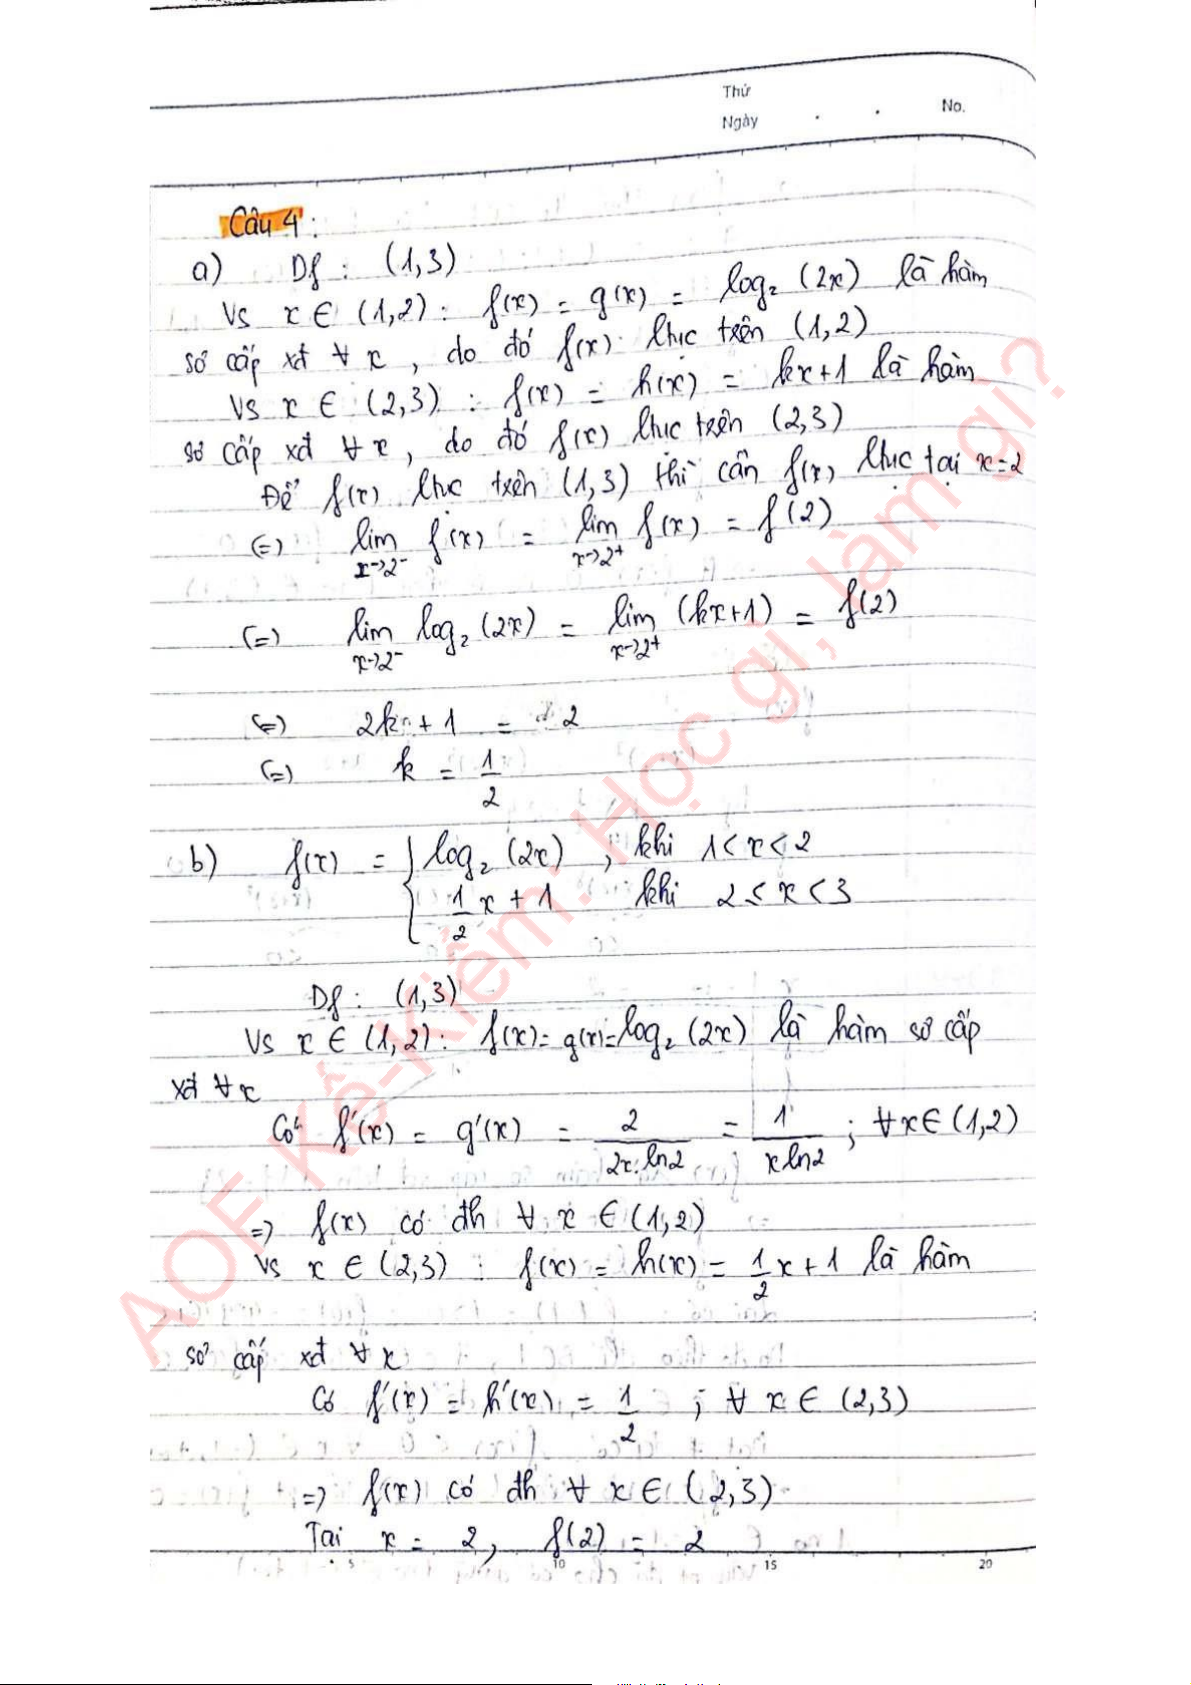 Thứ
Ngày . . No.
Câu 4:
a) Df : (1,3)
Vs x ∈ (1,2) : f(x) = g(x) = log₂ (2x) là hàm
sơ cấp xđ ∀ x , do đó f(x) ltục trên (1,2)
Vs x ∈ (2,3) : f(x) = h(x) = kx+1 là hàm
sơ cấp xđ ∀ x , do đó f(x) ltục trên (2,3)
Để f(x) ltục trên (1,3) thì cần f(x) ltục tại x=2
(=) lim x→2⁻ f(x) = lim x→2⁺ f(x) = f(2)
(=) lim x→2⁻ log₂ (2x) = lim x→2⁺ (kx+1) = f(2)
(=) 2k + 1 = 2
(=) k = 1/2
b) f(x) = { log₂ (2x) ; khi 1 < x < 2
1/2 x + 1 khi 2 ≤ x < 3
Df : (1,3)
Vs x ∈ (1,2) : f(x) = g(x) = log₂ (2x) là hàm sơ cấp
xđ ∀ x
Có f'(x) = g'(x) = 2/(2x.ln2) = 1/(x ln2) ; ∀ x ∈ (1,2)
=) f(x) có đh ∀ x ∈ (1,2)
Vs x ∈ (2,3) : f(x) = h(x) = 1/2 x + 1 là hàm
sơ cấp xđ ∀ x
Có f'(x) = h'(x) = 1/2 ; ∀ x ∈ (2,3)
=) f(x) có đh ∀ x ∈ (2,3)
Tại x = 2 , f(2) = 2
5 10 15 20
AOF Kế-Kiểm: Học gì, làm gì?